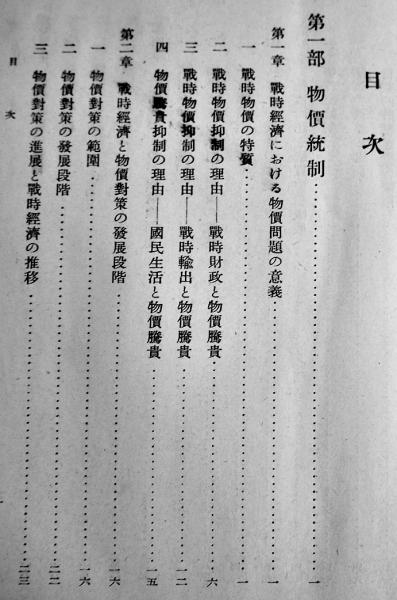 目次
第一部 物價統制……………一
第一章 戰時經濟における物價問題の意義……………一
一 戰時物價の特質……………一
二 戰時物價抑制の理由——戰時財政と物價騰貴……………六
三 戰時物價抑制の理由——戰時輸出と物價騰貴……………一二
四 物價騰貴抑制の理由——國民生活と物價騰貴……………一五
第二章 戰時經濟と物價對策の發展段階……………一六
一 物價對策の範圍……………一六
二 物價對策の發展段階……………二二
三 物價對策の進展と戰時經濟の推移……………二三
目次